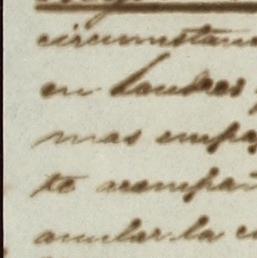 circunstan
en Londres
mas empe
te acompañ
anular la c